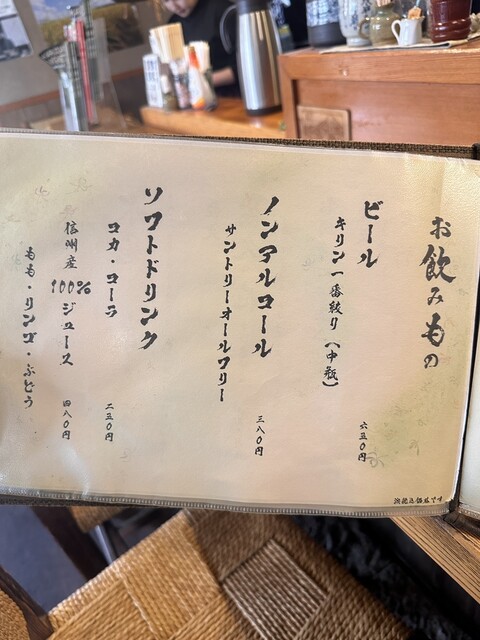 お飲みもの
ビール
キリン一番絞り(中瓶)
六五〇円
ノンアルコール
サントリーオールフリー
三八〇円
ソフトドリンク
コカ・コーラ
二五〇円
信州産100%ジュース
四八〇円
もも・リンゴ・ぶどう
消費込価格です